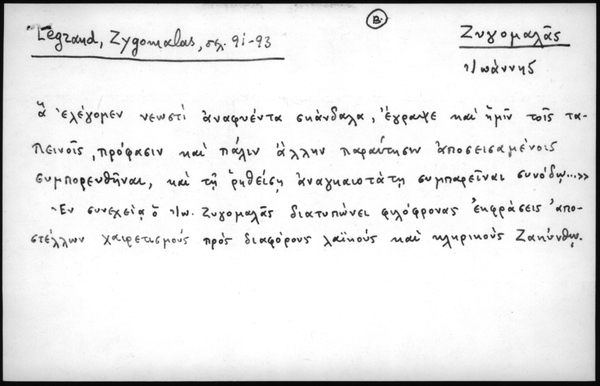 Β.
Legrand, Zygomalas, σελ. 91-93
Ζυγομαλᾶς
Ἰωάννης
ἃ ἐλέγομεν νεωστὶ ἀναφυέντα σκάνδαλα, ἔγραψε καὶ ἡμῖν τοῖς τα-
πεινοῖς, πρόφασιν καὶ πάλιν ἄλλην παραίτησιν ἀποσεισαμένοις
συμπορευθῆναι, καὶ τῇ ῥηθείσῃ ἀναγκαιοτάτῃ συμπαρεῖναι συνόδῳ...»
Ἐν συνεχείᾳ ὁ Ἰω. Ζυγομαλᾶς διατυπώνει φιλόφρονας ἐκφράσεις ἀπο-
στέλλων χαιρετισμοὺς πρὸς διαφόρους λαϊκοὺς καὶ κληρικοὺς Ζακύνθῳ.